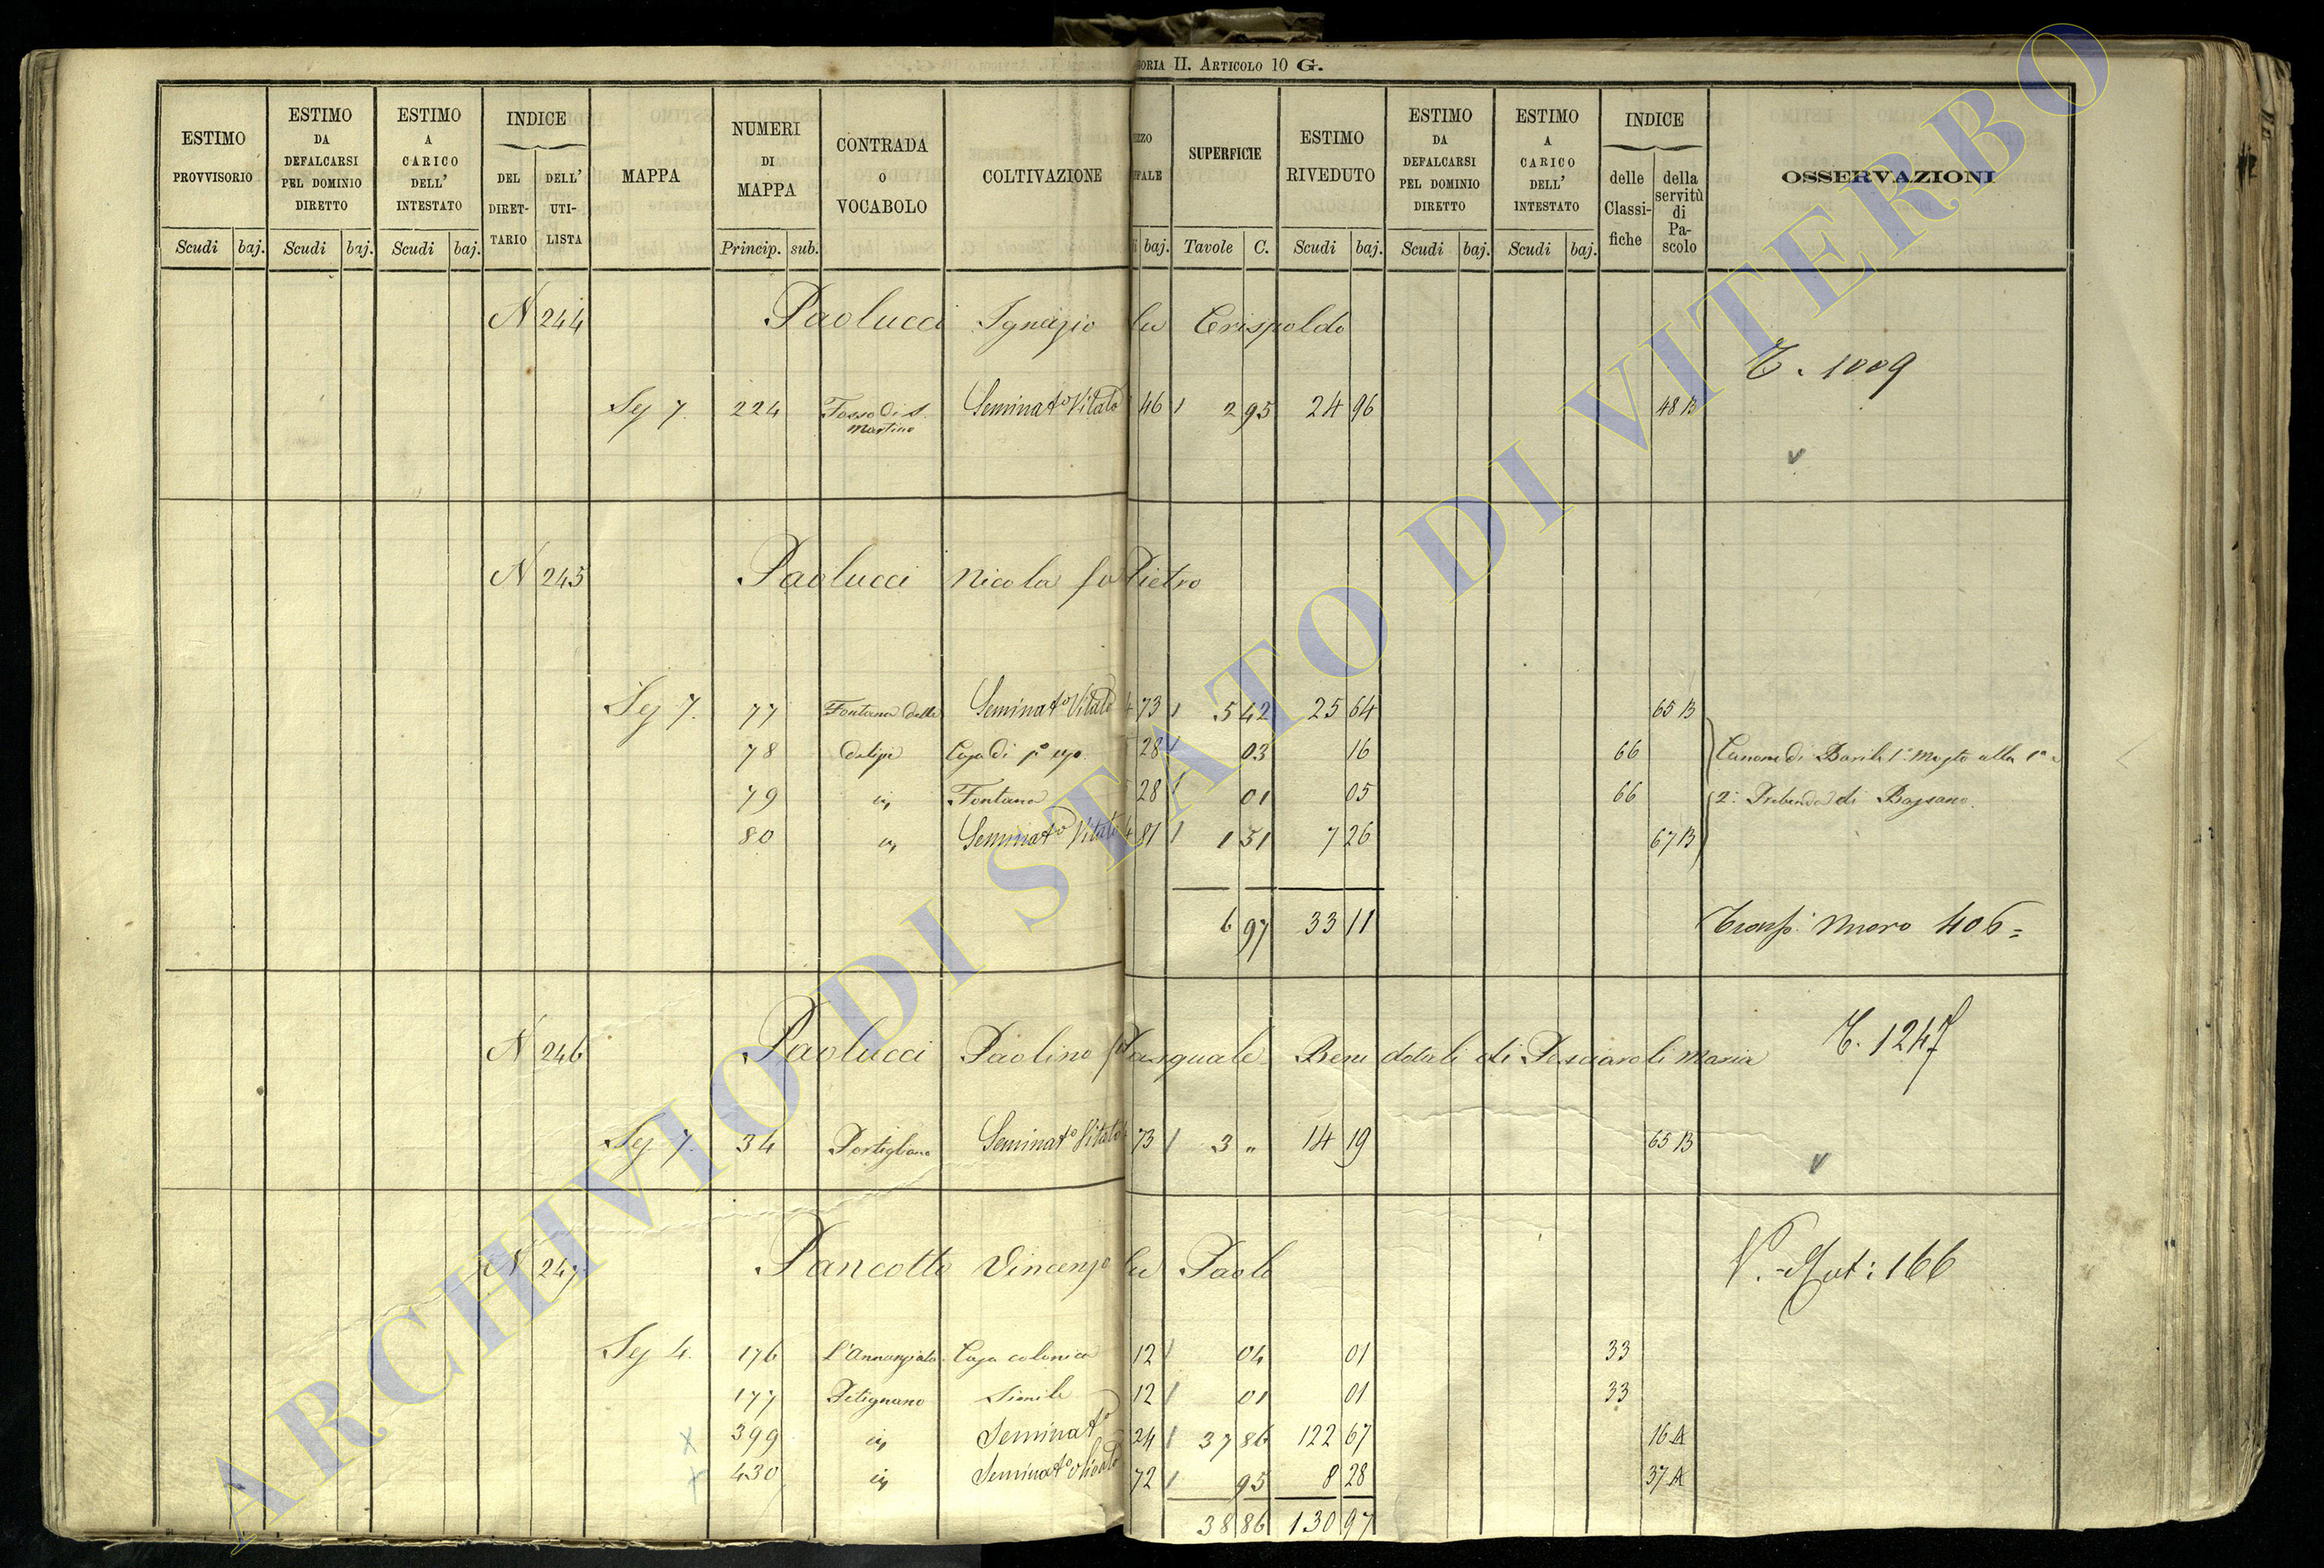 ORIA II. ARTICOLO 10 G.
ESTIMO PROVVISORIO | ESTIMO DA DEFALCARSI PEL DOMINIO DIRETTO | ESTIMO A CARICO DELL' INTESTATO | INDICE DEL DIRET-TARIO | DELL' UTI-LISTA | MAPPA | NUMERI DI MAPPA | CONTRADA O VOCABOLO | COLTIVAZIONE | SUPERFICIE | ESTIMO RIVEDUTO | ESTIMO DA DEFALCARSI PEL DOMINIO DIRETTO | ESTIMO A CARICO DELL' INTESTATO | INDICE delle Classi-fiche | della servitù di Pa-scolo | OSSERVAZIONI
Scudi baj. Scudi baj. Scudi baj. Princip. sub. baj. Tavole C. Scudi baj. Scudi baj. Scudi baj.
N 244 Paolucci Ignazio fu Crispoldo
T. 1009
Sez 7. 224 Fosso di S. Martino Seminat° Vitato 46 2 95 24 96 48 B
V
N 245 Paolucci Nicola fu Pietro
Sez 7. 77 Fontana delle Seminat° Vitato 4 73 5 42 25 64 65 B
78 Casa di p° uso 28 03 16 66 Canone di Barile 1 Mosto alla
79 in Fontana 28 01 05 66 2: Prebenda di Bassano.
80 in Seminat° Vitato 4 81 1 51 7 26 67 B
6 97 33 11 Trasp. Nuovo 406=
N 246 Paolucci Paolino fu Pasquale Beni dotali di Pesciaroli Maria T. 1247
Sez 7. 34 Portigliano Seminat° Vitato 73 3 " 14 19 65 B
V
N 247 Pancotto Vincenzo fu Paolo V. Mut: 166
Sez 4. 176 L'Annunziata Casa colonica 12 04 01 33
177 Petignano Simile 12 01 01 33
X 399 in Seminat° 24 37 86 122 67 16 A
X 430 in Seminat° olivato 72 95 8 28 37 A
38 86 130 97
ARCHIVIO DI STATO DI VITERBO